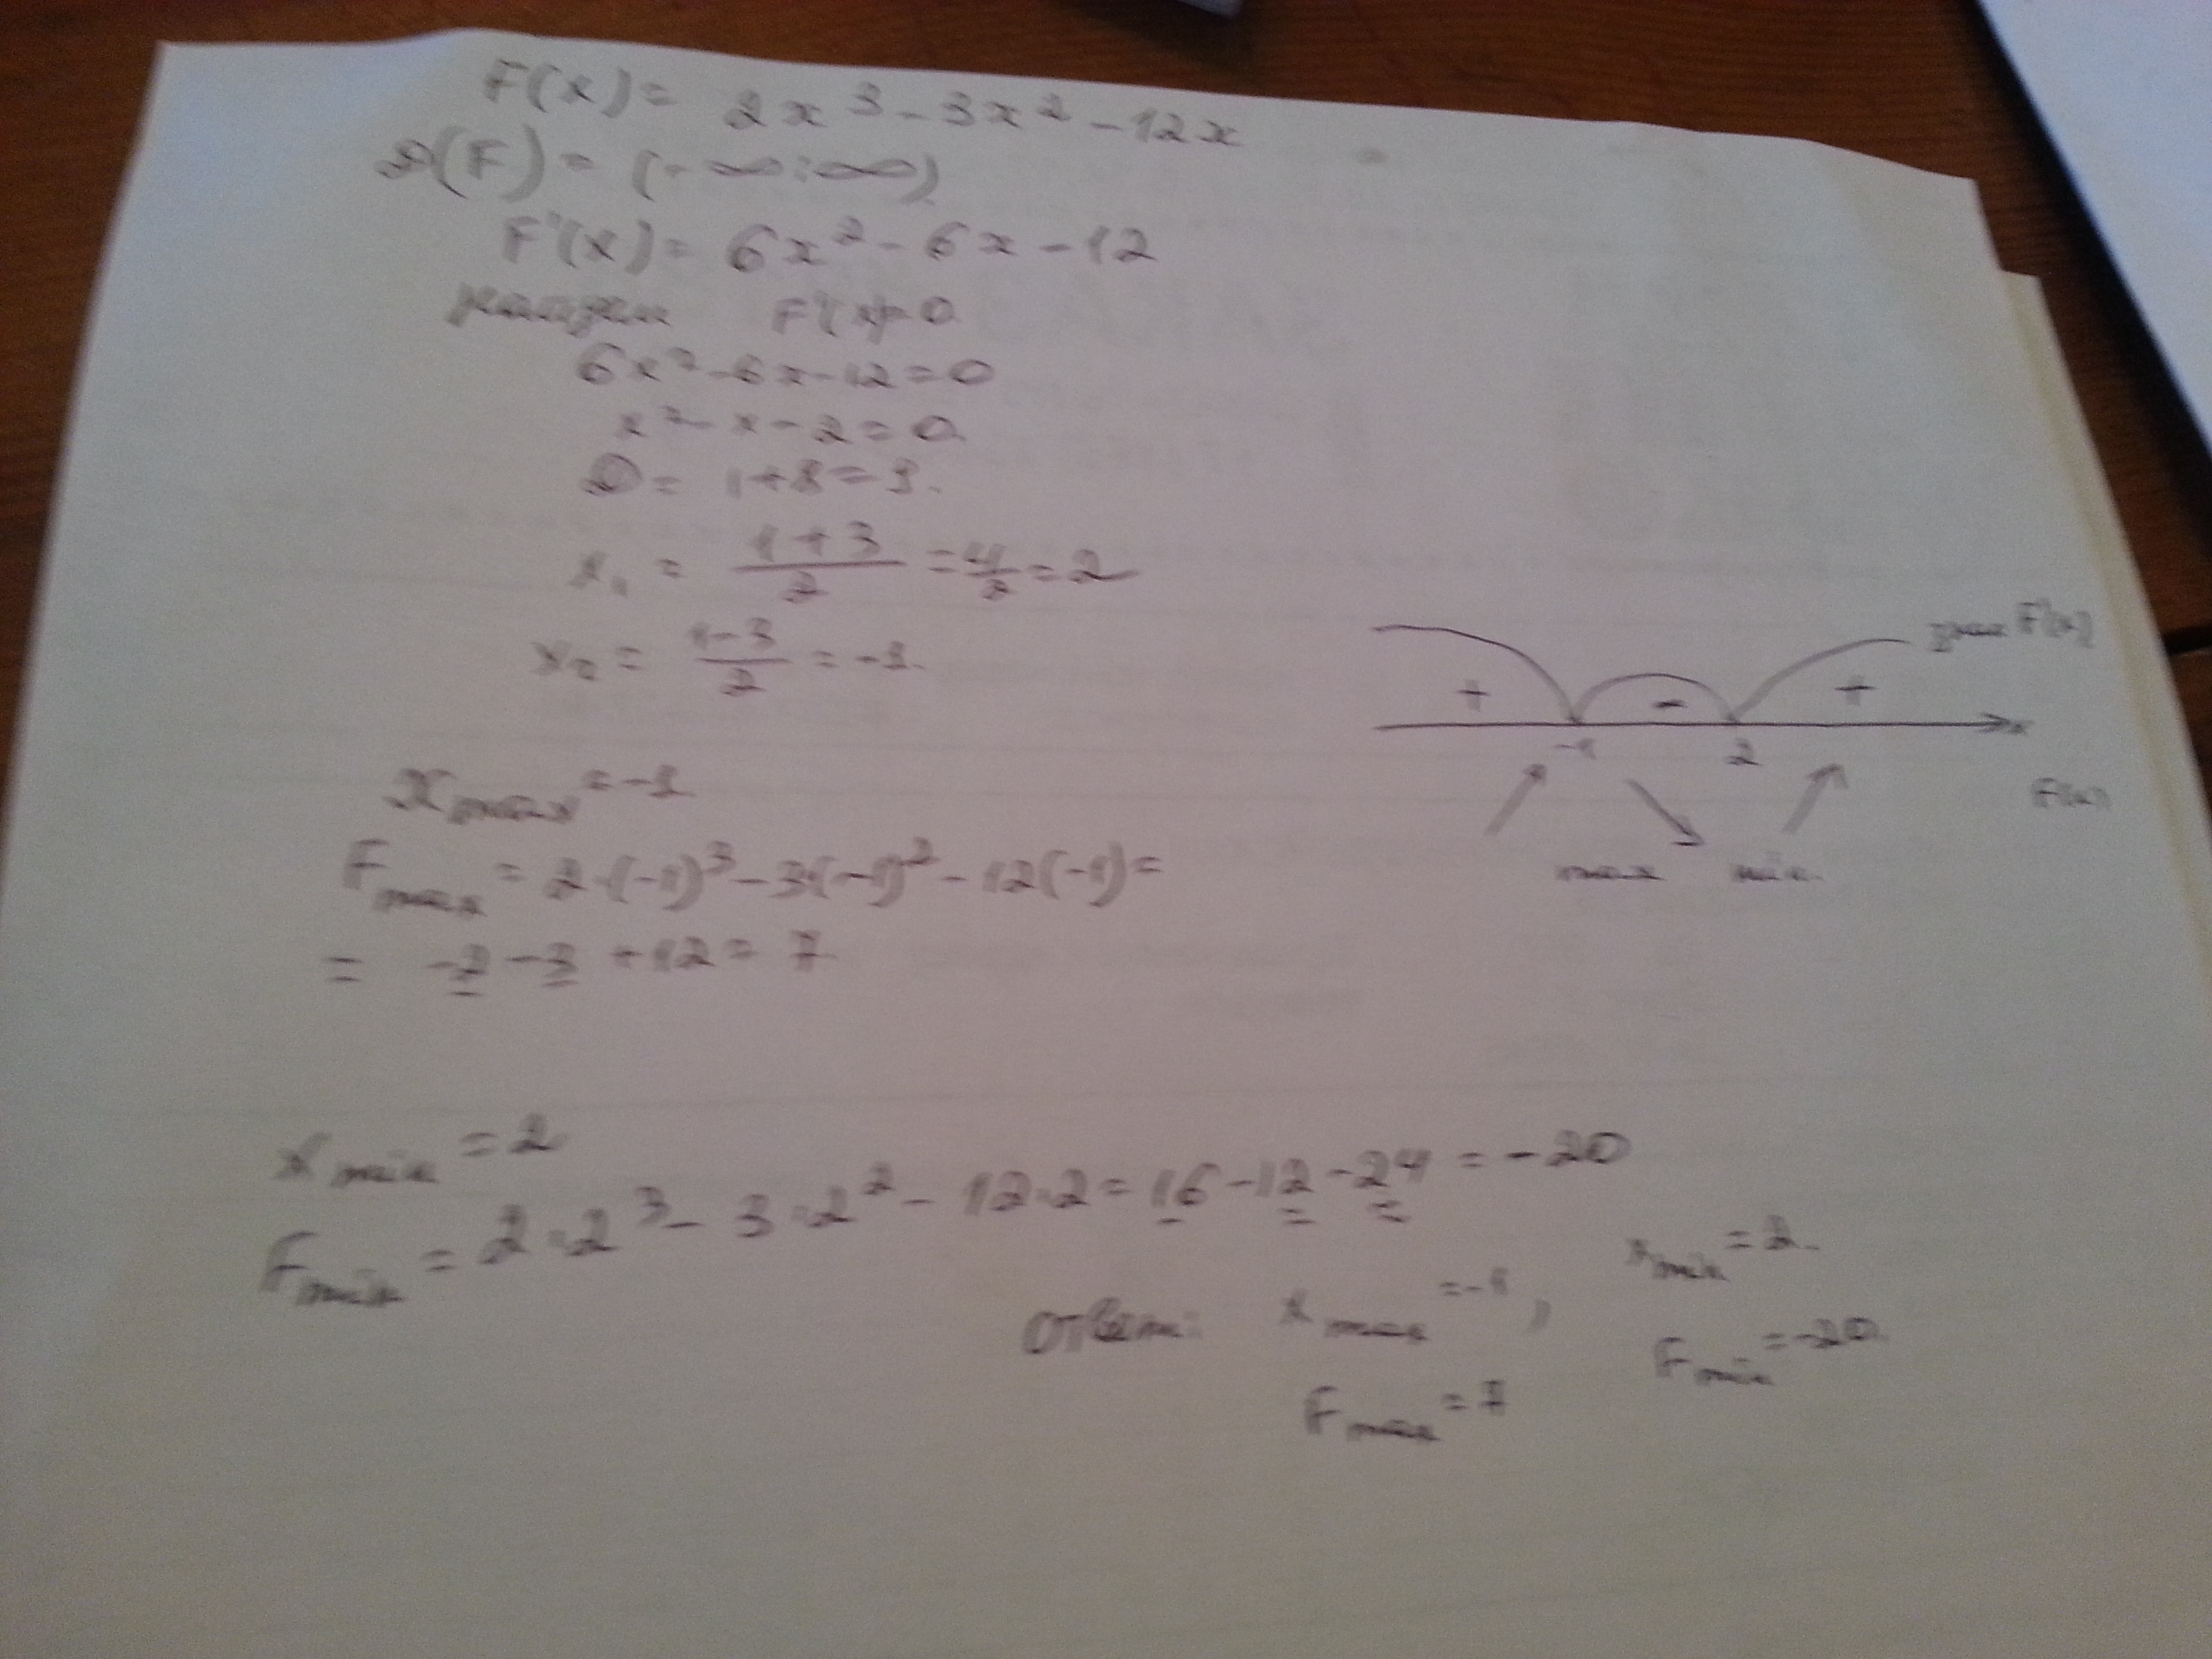 F(x) = 2x³ - 3x² - 12x
D(F) = (-∞; ∞)
F'(x) = 6x² - 6x - 12
F'(x)=0
6x² - 6x - 12 = 0
x² - x - 2 = 0
D = 1+8 = 9.
x₁ = (1+3)/2 = 4/2 = 2
x₂ = (1-3)/2 = -1.
знак F'(x)
+ - +
-1 2 x
F(x)
max min.
x max = -1
F max = 2·(-1)³ - 3·(-1)² - 12(-1) =
= -2 - 3 + 12 = 7
x min = 2
F min = 2·2³ - 3·2² - 12·2 = 16 - 12 - 24 = -20
Ответ: x max = -1, x min = 2.
F max = 7 F min = -20